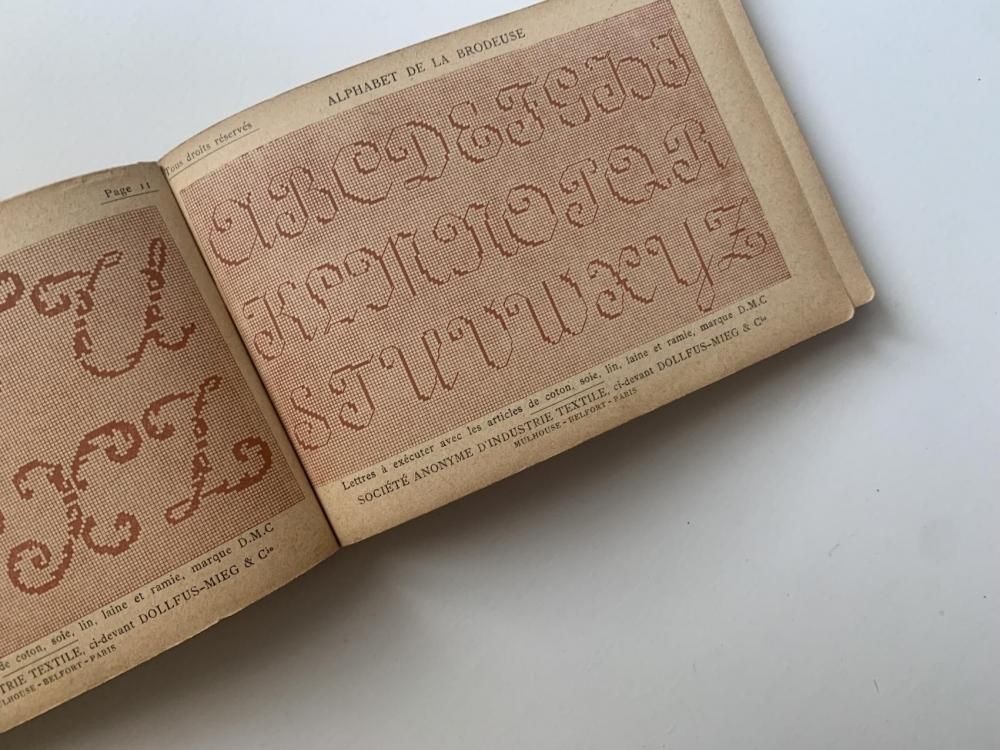 Page 11
I J
K L
de coton, soie, lin, laine et ramie, marque D.M.C
TRIE TEXTILE, ci-devant DOLLFUS-MIEG & Cie
MULHOUSE - BELFORT - PARIS
Tous droits réservés
ALPHABET DE LA BRODEUSE
A B C D E F G H I J
K L M N O P Q R
S T U V W X Y Z
Lettres à exécuter avec les articles de coton, soie, lin, laine et ramie, marque D.M.C
SOCIÉTÉ ANONYME D'INDUSTRIE TEXTILE, ci-devant DOLLFUS-MIEG & Cie
MULHOUSE - BELFORT - PARIS